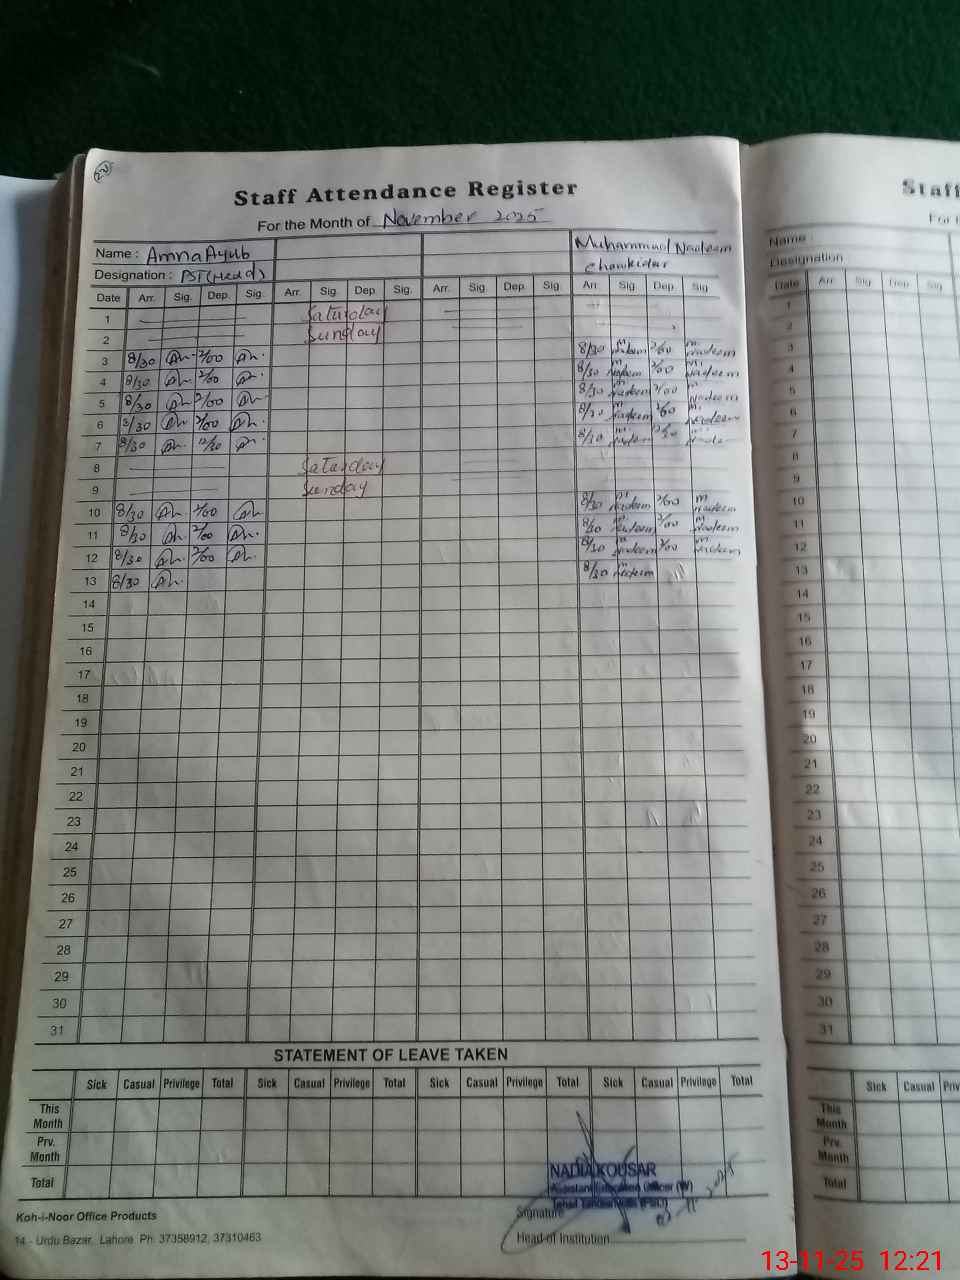 Staff Attendance Register
For the Month of November 2025
Name : Amna Ayub Muhammad Nadeem
Designation : PST (Head) Chowkidar
Date Arr. Sig. Dep. Sig. Arr. Sig. Dep. Sig. Arr. Sig. Dep. Sig. Arr. Sig. Dep. Sig.
1 Saturday
2 Sunday
3 8/30 2/00 8/30 M Nadeem 2/00 M Nadeem
4 8/30 2/00 8/30 Nadeem 2/00 M. Nadeem
5 8/30 2/00 8/30 Nadeem 2/00 M Nadeem
6 8/30 2/00 8/30 M Nadeem 2/00 M. Nadeem
7 8/30 12/30 8/30 M Nadeem 12/30 M
8 Saturday
9 Sunday
10 8/30 2/00 8/30 M Nadeem 2/00 M Nadeem
11 8/30 2/00 8/30 M Nadeem 2/00 M Nadeem
12 8/30 2/00 8/30 M Nadeem 2/00 M Nadeem
13 8/30 8/30 M Nadeem
14
15
16
17
18
19
20
21
22
23
24
25
26
27
28
29
30
31
STATEMENT OF LEAVE TAKEN
Sick Casual Privilege Total Sick Casual Privilege Total Sick Casual Privilege Total Sick Casual Privilege Total
This Month
Prv. Month
Total
NADIA KOUSAR
Assistant Education Officer (W)
Signature
Head of Institution
Koh-i-Noor Office Products
14 - Urdu Bazar, Lahore Ph: 37358912, 37310463
Staff
Name :
Designation
Date Arr. Sig. Dep. Sig
1
2
3
4
5
6
7
8
9
10
11
12
13
14
15
16
17
18
19
20
21
22
23
24
25
26
27
28
29
30
31
Sick Casual Priv
This Month
Prv. Month
Total
13-11-25 12:21